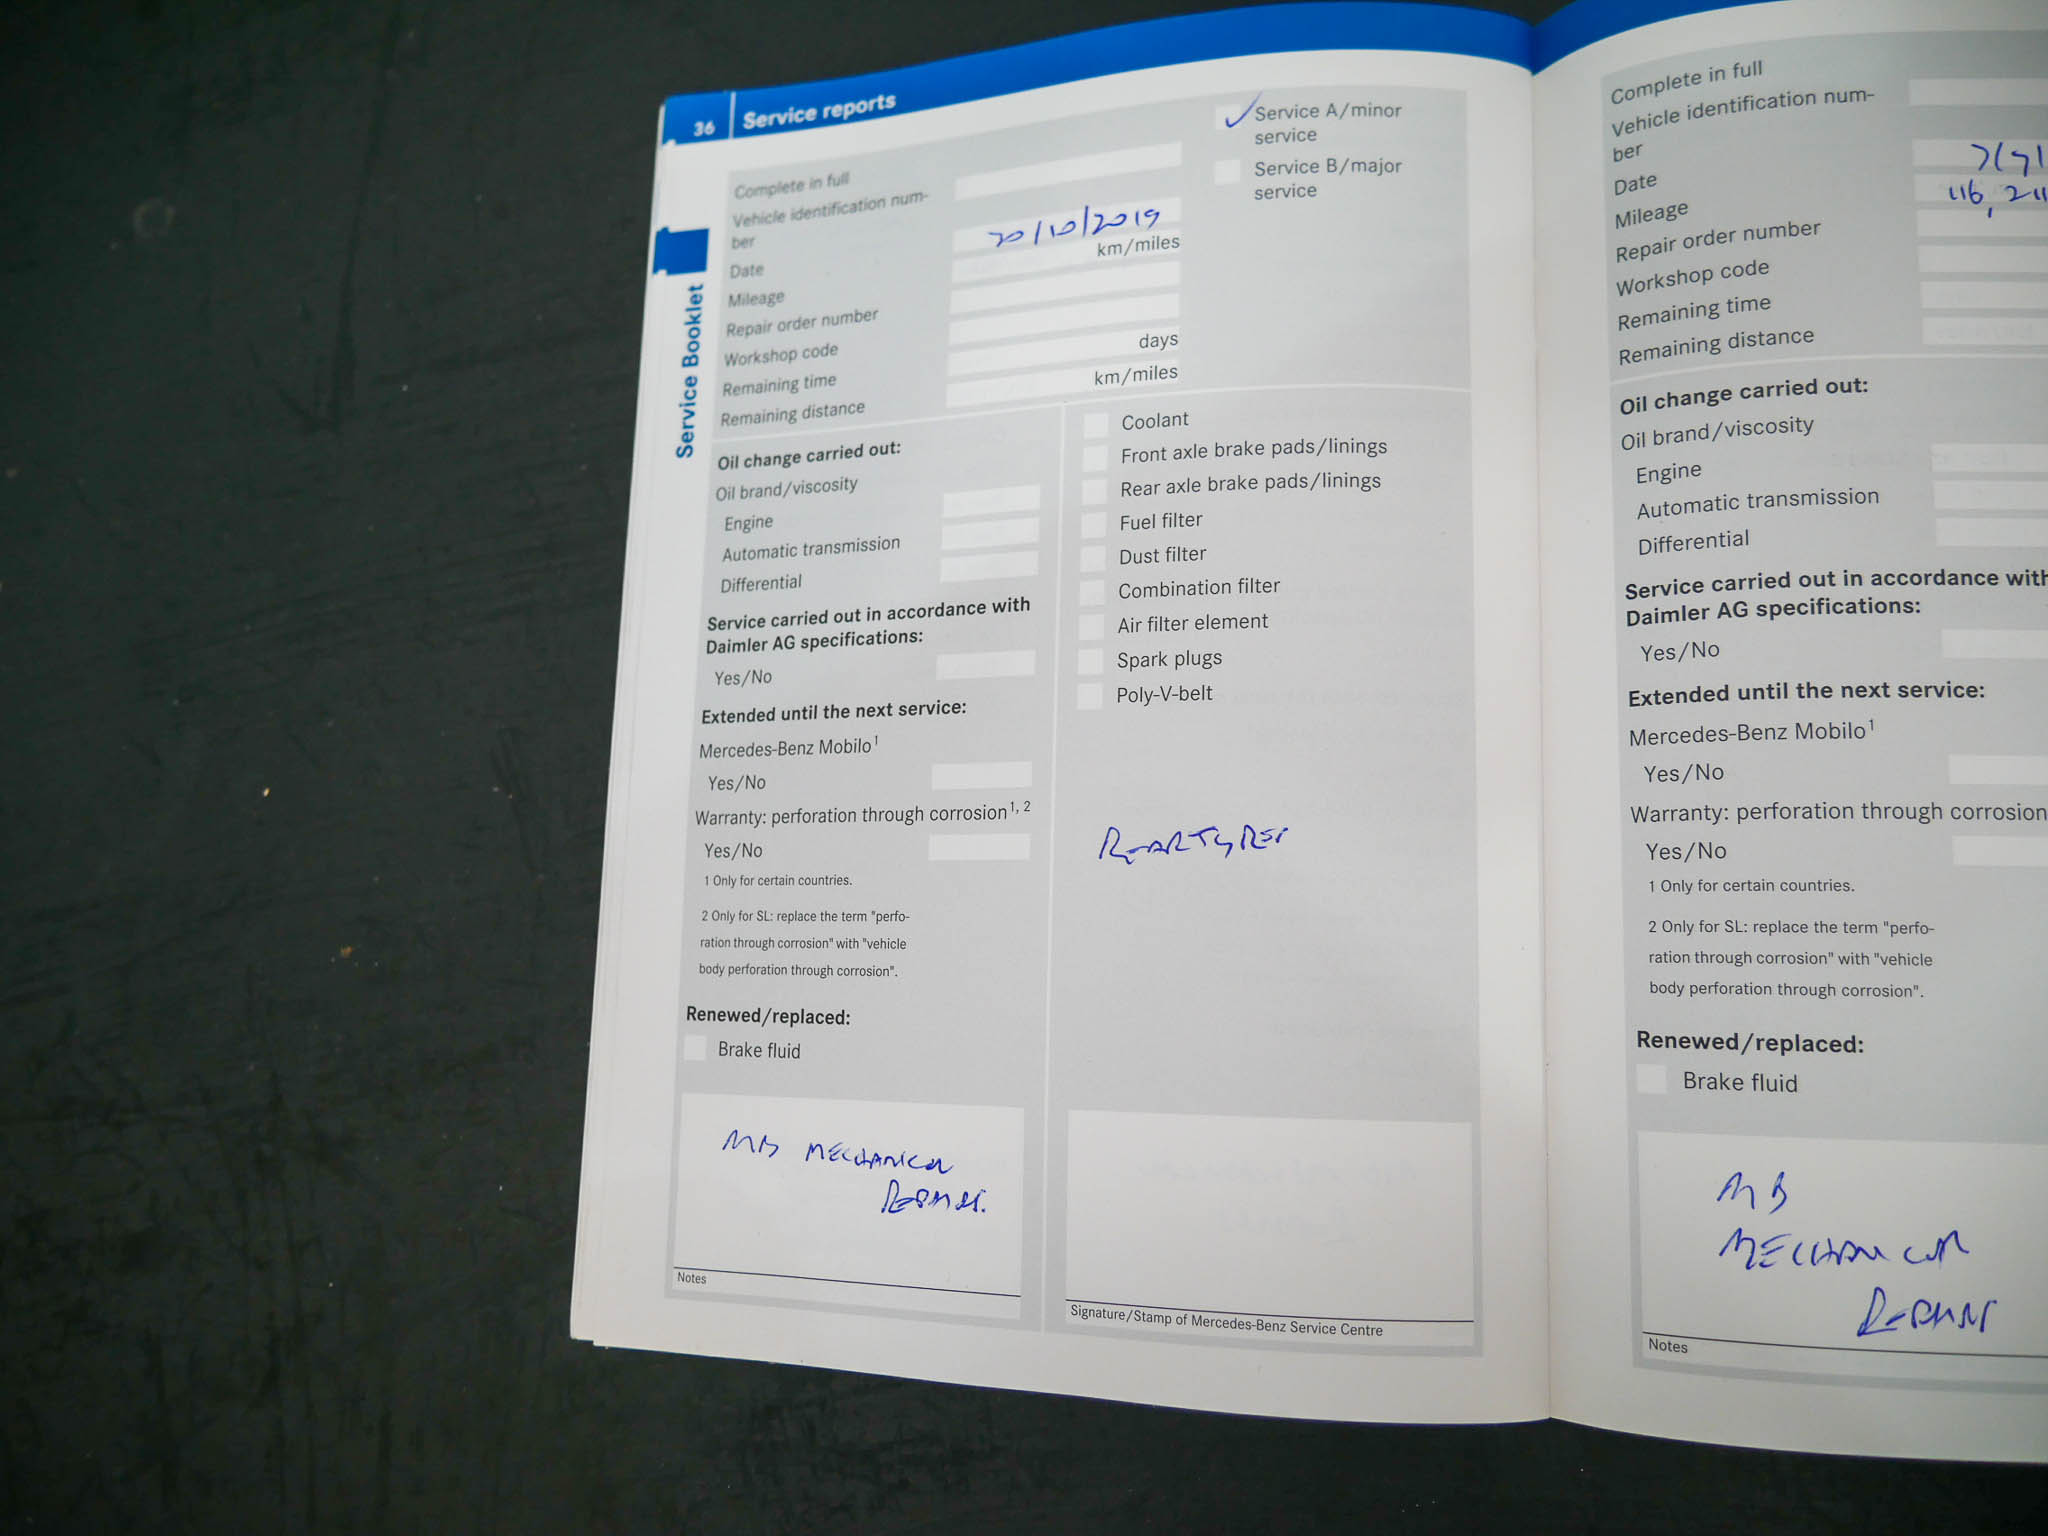 36 Service reports
Service Booklet
Complete in full
Vehicle identification num-
ber
Date 20/10/2019
Mileage km/miles
Repair order number
Workshop code
Remaining time days
Remaining distance km/miles
Service A/minor
service
Service B/major
service
Oil change carried out:
Oil brand/viscosity
Engine
Automatic transmission
Differential
Service carried out in accordance with
Daimler AG specifications:
Yes/No
Extended until the next service:
Mercedes-Benz Mobilo1
Yes/No
Warranty: perforation through corrosion1, 2
Yes/No
1 Only for certain countries.
2 Only for SL: replace the term "perfo-
ration through corrosion" with "vehicle
body perforation through corrosion".
Renewed/replaced:
Brake fluid
MB MECHANICAL
REPAIRS.
Notes
Coolant
Front axle brake pads/linings
Rear axle brake pads/linings
Fuel filter
Dust filter
Combination filter
Air filter element
Spark plugs
Poly-V-belt
REAR TYRES
Signature/Stamp of Mercedes-Benz Service Centre
Complete in full
Vehicle identification num-
ber
Date
Mileage 116,211
Repair order number
Workshop code
Remaining time
Remaining distance
Oil change carried out:
Oil brand/viscosity
Engine
Automatic transmission
Differential
Service carried out in accordance with
Daimler AG specifications:
Yes/No
Extended until the next service:
Mercedes-Benz Mobilo1
Yes/No
Warranty: perforation through corrosion
Yes/No
1 Only for certain countries.
2 Only for SL: replace the term "perfo-
ration through corrosion" with "vehicle
body perforation through corrosion".
Renewed/replaced:
Brake fluid
MB
MECHANICAL
REPAIRS
Notes